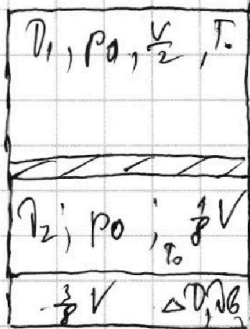 ν₁, p₀, V/2, T₀
ν₂; p₀; T₀ 1/8 V
3/8 V Δν, дв